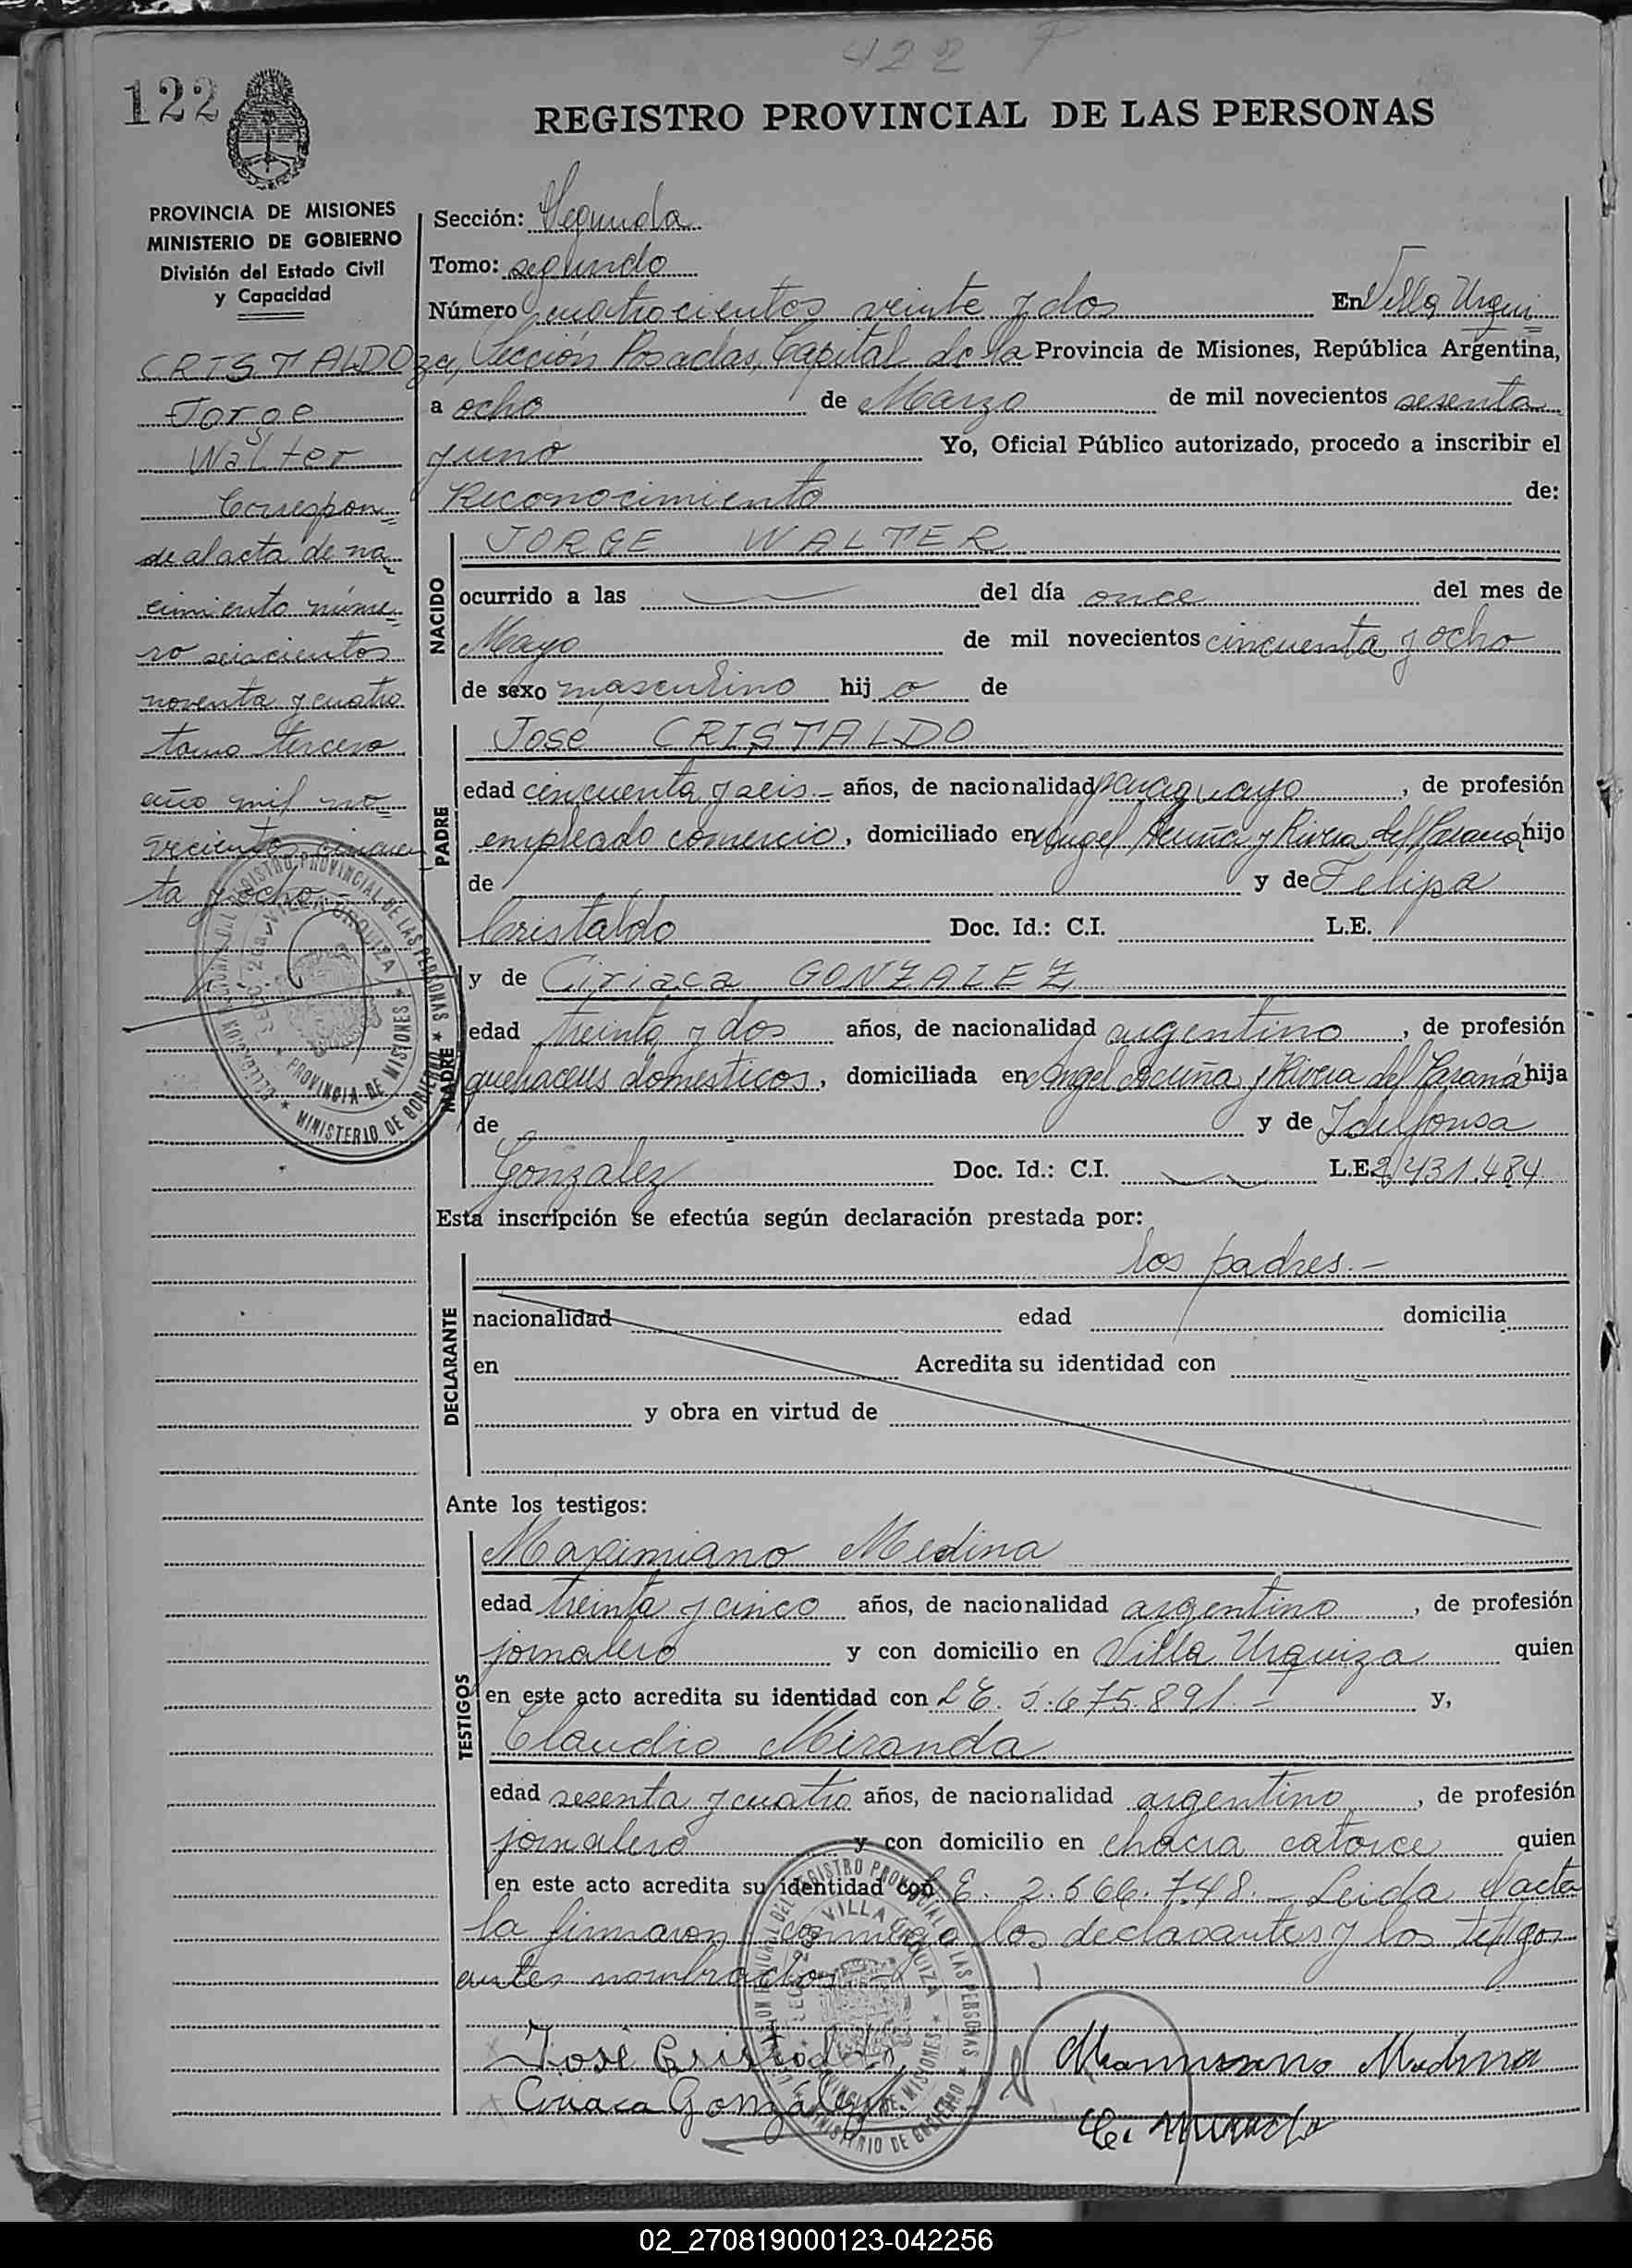 422
122
REGISTRO PROVINCIAL DE LAS PERSONAS
PROVINCIA DE MISIONES
MINISTERIO DE GOBIERNO
División del Estado Civil
y Capacidad
CRISTALDO
Jorge
Walter
Correspon=
de al acta de na
cimiento núme=
ro seiscientos
noventa y cuatro
tomo tercero
año mil no
vecientos cincuen
ta y ocho
Sección: Segunda
Tomo: segundo
Número cuatrocientos veinte y dos En Villa Urqui=
za, Sección Posadas, Capital de la Provincia de Misiones, República Argentina,
a ocho de Marzo de mil novecientos sesenta
y uno Yo, Oficial Público autorizado, procedo a inscribir el
Reconocimiento de:
NACIDO
JORGE WALTER
ocurrido a las del día once del mes de
Mayo de mil novecientos cincuenta y ocho
de sexo masculino hijo de
PADRE
José CRISTALDO
edad cincuenta y seis.- años, de nacionalidad paraguayo, de profesión
empleado comercio, domiciliado en Angel Acuña y Rivera del Paraná hijo
de y de Felipa
Cristaldo Doc. Id.: C.I. L.E.
MADRE
y de Ciriaca GONZALEZ
edad treinta y dos años, de nacionalidad argentino, de profesión
quehaceres domesticos, domiciliada en Angel Acuña y Rivera del Paraná hija
de y de Idelfonsa
Gonzalez Doc. Id.: C.I. L.E. 2.431.484
Esta inscripción se efectúa según declaración prestada por:
DECLARANTE
los padres.-
nacionalidad edad domicilia
en Acredita su identidad con
y obra en virtud de
Ante los testigos:
TESTIGOS
Maximiano Medina
edad treinta y cinco años, de nacionalidad argentino, de profesión
jornalero y con domicilio en Villa Urquiza quien
en este acto acredita su identidad con L E. 5.675.891.- y,
Claudio Miranda
edad sesenta y cuatro años, de nacionalidad argentino, de profesión
jornalero y con domicilio en chacra catorce quien
en este acto acredita su identidad con L E. 2.566.748.- Leida el acta
la firmaron conmigo los declarantes y los testigos
antes nombrados
José Cristaldo
Ciriaca González
Maximiano Medina
Cl. Miranda
REGISTRO PROVINCIAL DE LAS PERSONAS
VILLA URQUIZA
PROVINCIA DE MISIONES
MINISTERIO DE GOBIERNO
02_270819000123-042256